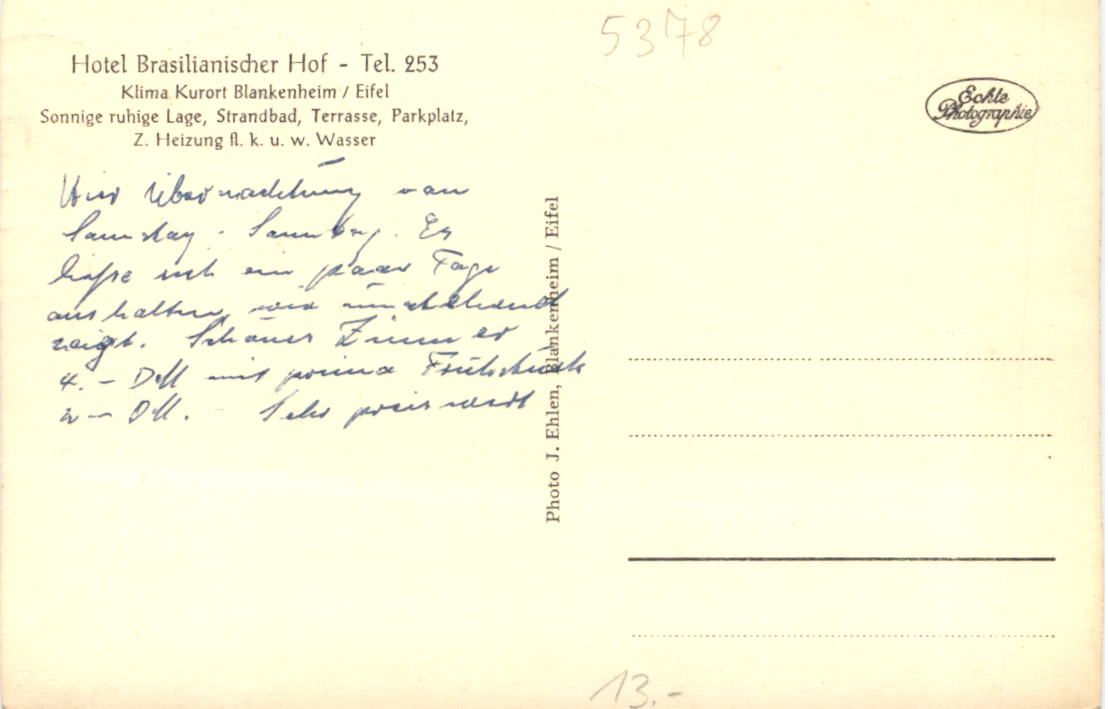 5378
Hotel Brasilianischer Hof - Tel. 253
Klima Kurort Blankenheim / Eifel
Sonnige ruhige Lage, Strandbad, Terrasse, Parkplatz,
Z. Heizung fl. k. u. w. Wasser
Echte
Photographie
Hier Übernachtung von
Samstag - Sonntag. Es
ließe sich ein paar Tage
aushalten, wie
zeigt. Schönes Zimmer
4.- DM mit prima Frühstück
2.- DM. - Sehr preiswert
Photo J. Ehlen, Blankenheim / Eifel
13.-